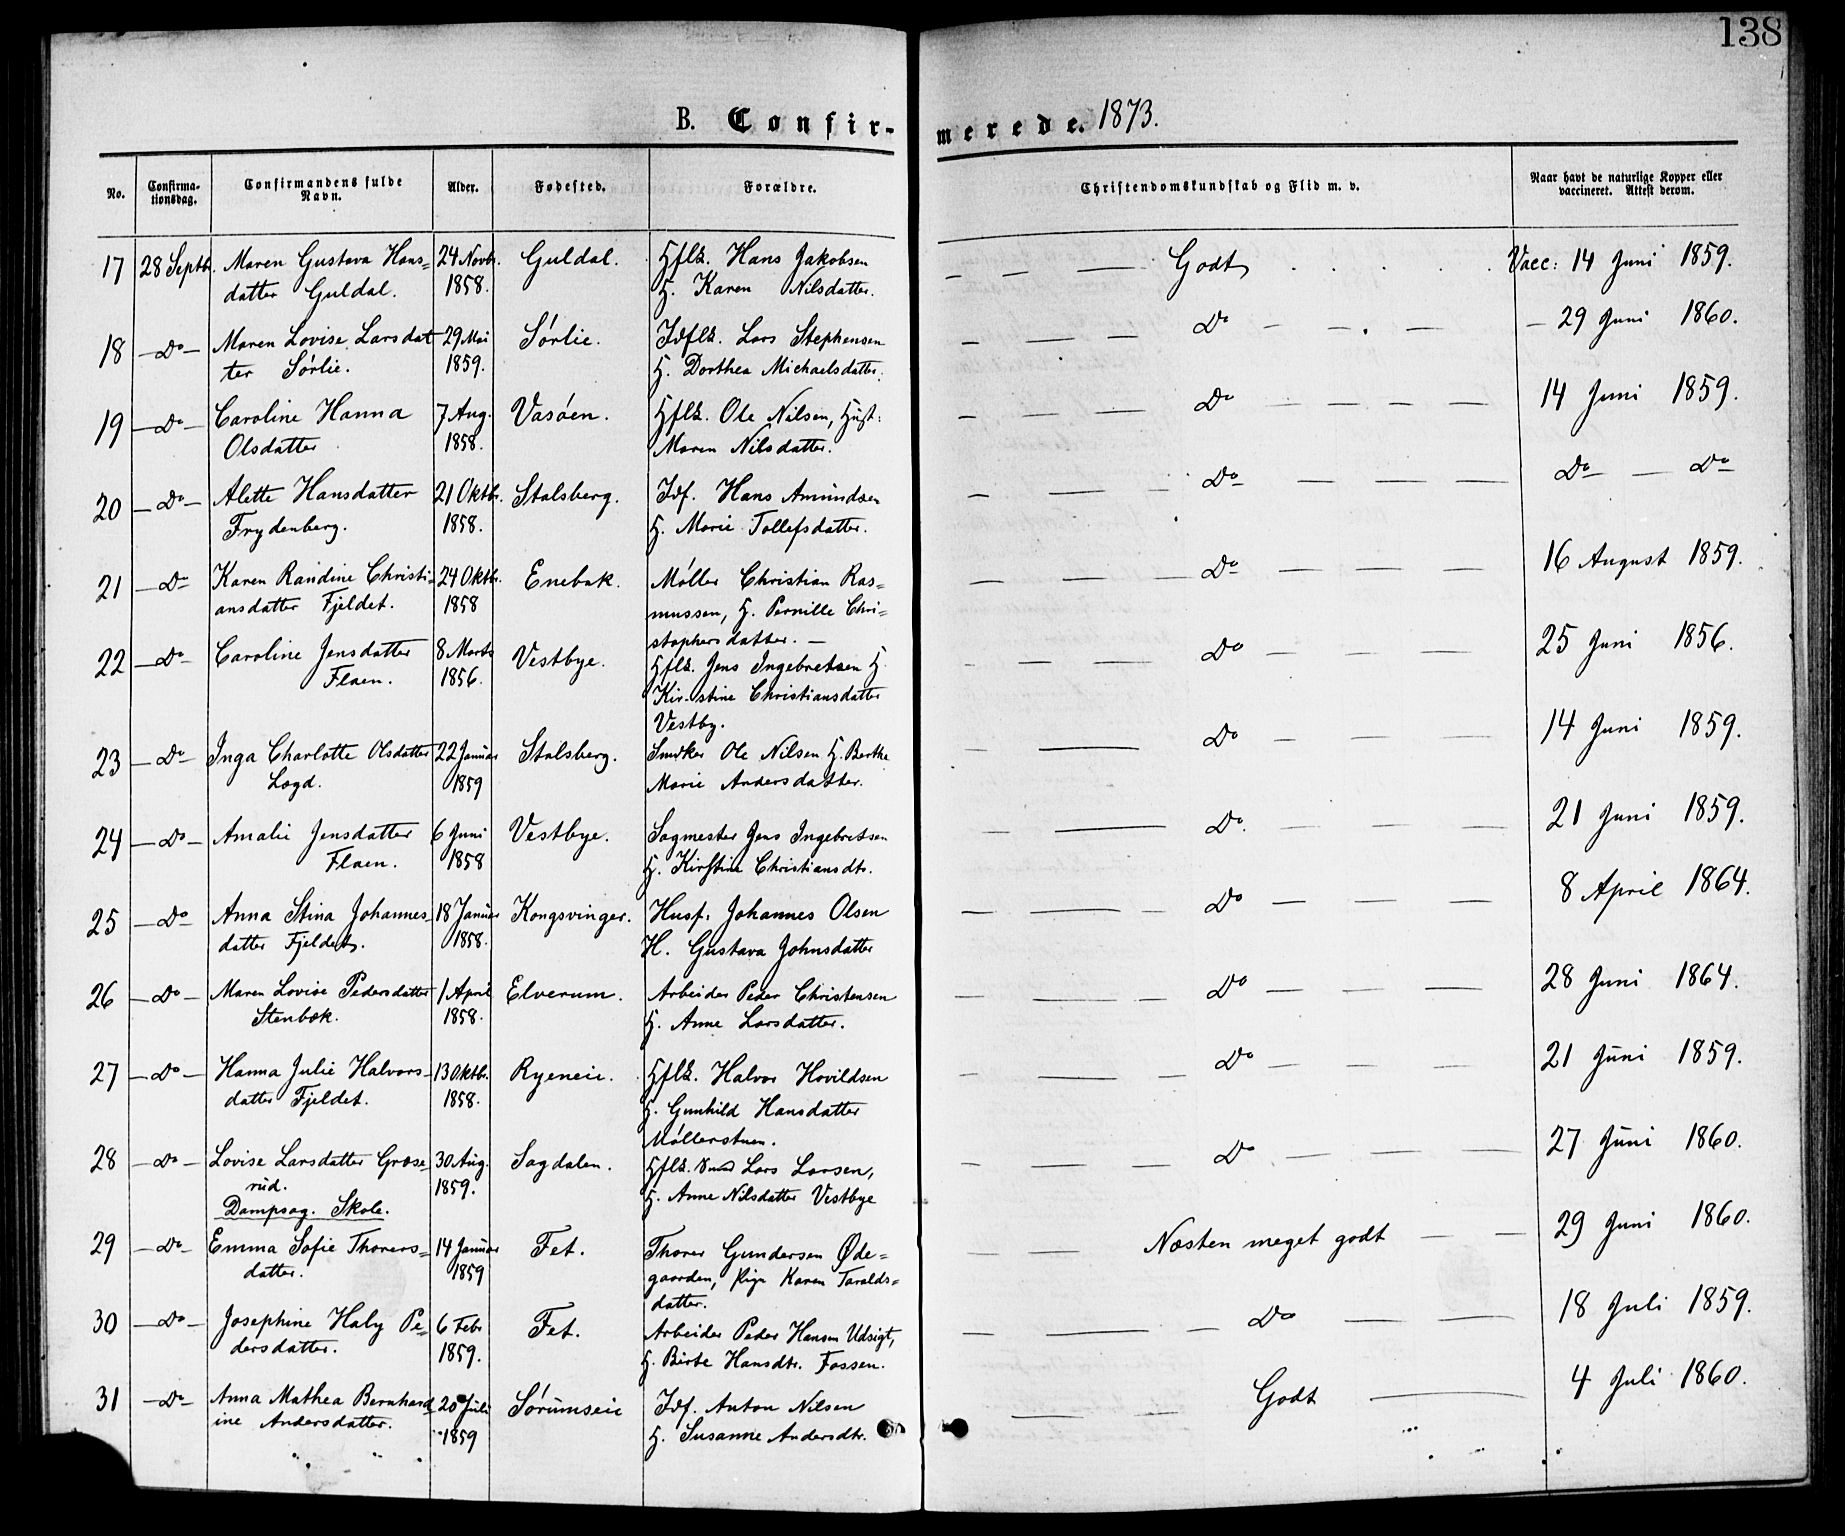 138
B. Confir-merede. 1873.
No. Confirma-tionsdag. Confirmandens fulde Navn. Alder. Fødested. Forældre. Christendomskundskab og Flid m. v. Naar havt de naturlige Kopper eller vaccineret. Attest derom.
17 28 Septb. Maren Gustava Hans= 24 Novbr. Guldal. Hflk. Hans Jakobsen — — — Godt Vacc: 14 Juni 1859.
datter Guldal. 1858. H. Karen Nilsdatter.
18 — Do — Maren Lovise Larsdat 29 Mai Sørlie. Idflk. Lars Stephensen — — — Do — — — — 29 Juni 1860.
ter Sørlie. 1859. H. Dorthea Michaelsdatter.
19 — Do — Caroline Hanna 7 Aug. Vasøen. Hflk. Ole Nilsen, Hust: — — — Do — — — — 14 Juni 1859.
Olsdatter 1858. Maren Nilsdatter.
20 — Do — Alette Hansdatter 21 Oktbr. Stalsberg. Idf. Hans Amundsen — — — Do — — — Do — Do
Frydenberg. 1858. H. Marie Tollefsdatter.
21 — Do Karen Randine Christi= 24 Oktbr. Enebak. Møller Christian Ras= — — — Do — — — 16 August 1859.
ansdatter Fjeldet. 1858 mussen, H. Pernille Chri=
stophersdatter. —
22 — Do — Caroline Jensdatter 8 Marts Vestbye. Hflk. Jens Ingebretsen H. — — — Do — — — 25 Juni 1856.
Flaen. 1856. Kirstine Christiansdatter
Vestby.
23 — Do — Inga Charlotte Olsdatter 22 Januar Stalsberg. Snedker Ole Nilsen H. Berthe — — — Do — — — 14 Juni 1859.
Logd. 1859 Marie Andersdatter.
24 — Do — Amalie Jensdatter 6 Juni Vestbye. Sagmester Jens Ingebretsen — — Do. — — — 21 Juni 1859.
Flaen. 1858 H. Kirstine Christiansdtr.
25 — Do — Anna Stina Johannes= 18 Januar Kongsvinger. Husf. Johannes Olsen — — — Do — — — 8 April 1864.
datter Fjeldet. 1858. H. Gustava Johnsdatter
26 — Do — Maren Lovise Pedersdatter 1 April Elverum. Arbeider Peder Christensen — — — Do — — — 28 Juni 1864.
Stenbek. 1858. H. Anne Larsdatter.
27 — Do — Hanna Julie Halvors= 13 Oktb. Ryeneie. Hflk. Halvor Hovildsen — — — Do — — — 21 Juni 1859.
datter Fjeldet. 1858. H. Gunhild Hansdatter
Møllerstuen.
28 — Do — Lovise Larsdatter Grase= 30 Aug. Sagdalen. Hflk. Lars Larsen, — — — Do — — — 27 Juni 1860.
rud. 1859. H. Anne Nilsdatter Vestbye
Dampsag. Skole.
29 — Do — Emma Sofie Thorers= 14 Januar Fet. Thorer Gundersen Øde= — — Næsten meget godt — — 29 Juni 1860.
datter. 1859 gaarden, Pige Karen Taralds=
datter.
30 — Do — Josephine Haly Pe= 6 Febr Fet. Arbeider Peder Hansen Udsigt, — — — Do — — 18 Juli 1859.
dersdatter. 1859. H. Birte Hansdtr. Fossen.
31 — Do — Anna Mathea Bernhard= 20 Juli Sørumseie Idf. Anton Nilsen — — Godt — 4 Juli 1860.
ine Andersdatter. 1859 H. Susanne Andersdtr.